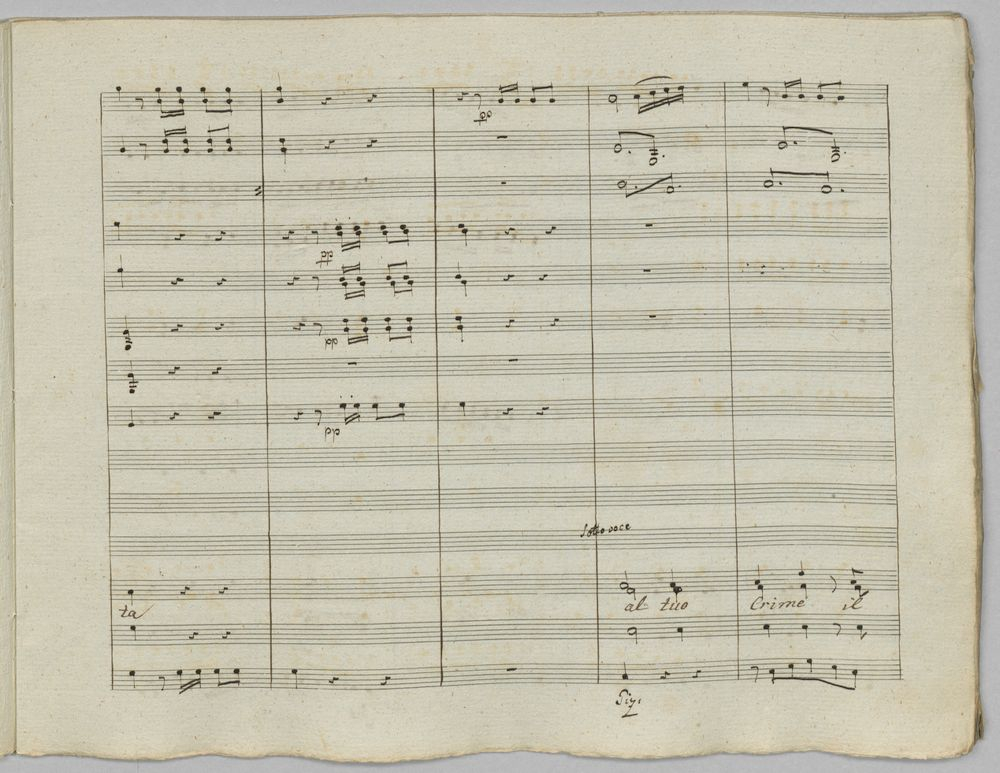 pp
pp
pp
pp
Sotto voce
ta al tuo Crime il